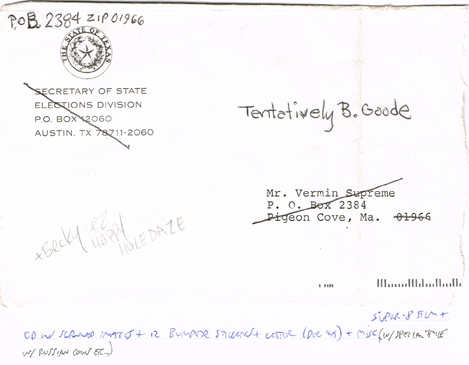 P.O.B. 2384 ZIP 01966
THE STATE OF TEXAS
SECRETARY OF STATE
ELECTIONS DIVISION
P.O. BOX 12060
AUSTIN, TX 78711-2060
Tentatively B. Goode
Mr. Vermin Supreme
P. O. Box 2384
Pigeon Cove, Ma. 01966
+ BECKY SEZ
HAPPY
HOLEDAZE
SUPER-8 FILM +
CD W/ SCANNED IMAGES + 12 BUMPER STICKERS + LETTER + MISC (W/ SPECIAL
W/ RUSSIAN COINS ETC.)